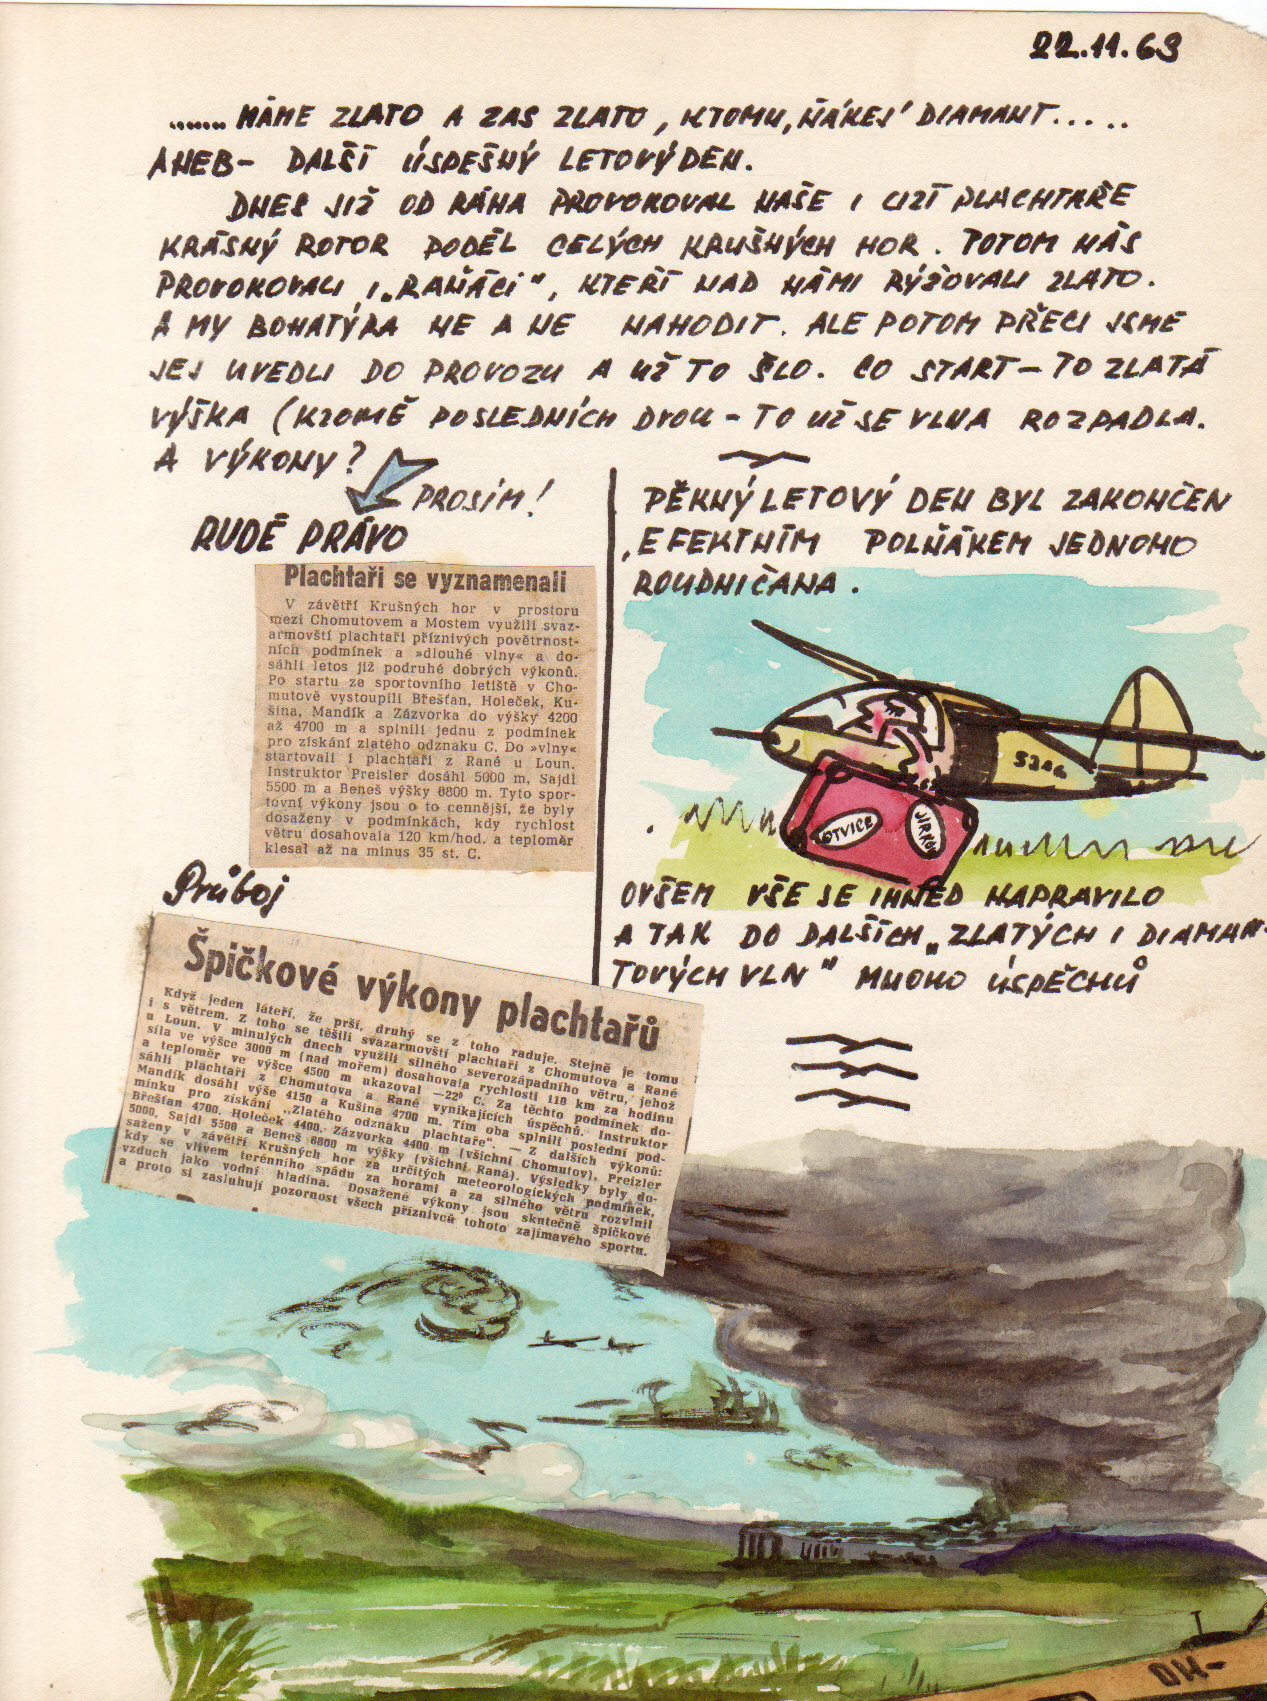 22.11.63
....... MÁME ZLATO A ZAS ZLATO, KTOMU, ŇÁKEJ DIAMANT.....
ANEB- DALŠÍ ÚSPEŠNÝ LETOVÝ DEN.
DNES JIŽ OD RÁNA PROVOKOVAL NAŠE I CIZÍ PLACHTAŘE
KRÁSNÝ ROTOR PODÉL CELÝCH KRUŠNÝCH HOR. POTOM NÁS
PROVOKOVALI I „RAŇÁCI", KTEŘÍ NAD NÁMI RÝŽOVALI ZLATO.
A MY BOHATÝRA NE A NE NAHODIT. ALE POTOM PŘECI JSME
JEJ UVEDLI DO PROVOZU A UŽ TO ŠLO. CO START-TO ZLATÁ
VÝŠKA (KROMĚ POSLEDNÍCH DVOU - TO UŽ SE VLNA ROZPADLA.
A VÝKONY?
PROSÍM!
RUDÉ PRÁVO
Plachtaři se vyznamenali
V závětří Krušných hor v prostoru
mezi Chomutovem a Mostem využili svaz-
armovští plachtaři příznivých povětrnost-
ních podmínek a »dlouhé vlny« a do-
sáhli letos již podruhé dobrých výkonů.
Po startu ze sportovního letiště v Cho-
mutově vystoupili Břešťan, Holeček, Ku-
šina, Mandík a Zázvorka do výšky 4200
až 4700 m a splnili jednu z podmínek
pro získání zlatého odznaku C. Do »vlny«
startovali i plachtaři z Rané u Loun.
Instruktor Preisler dosáhl 5000 m, Sajdl
5500 m a Beneš výšky 6800 m. Tyto spor-
tovní výkony jsou o to cennější, že byly
dosaženy v podmínkách, kdy rychlost
větru dosahovala 120 km/hod. a teploměr
klesal až na minus 35 st. C.
Průboj
Špičkové výkony plachtařů
Když jeden láteří, že prší, druhý se z toho raduje. Stejně je tomu
i s větrem. Z toho se těšili svazarmovští plachtaři z Chomutova a Rané
u Loun. V minulých dnech využili silného severozápadního větru, jehož
síla ve výšce 3000 m (nad mořem) dosahovala rychlosti 110 km za hodinu
a teploměr ve výšce 4500 m ukazoval —22° C. Za těchto podmínek do-
sáhli plachtaři z Chomutova a Rané vynikajících úspěchů. Instruktor
Mandík dosáhl výše 4150 a Kušina 4700 m. Tím oba splnili poslední pod-
mínku pro získání „Zlatého odznaku plachtaře". — Z dalších výkonů:
Břešťan 4700, Holeček 4400, Zázvorka 4400 m (všichni Chomutov), Preizler
5000, Sajdl 5500 a Beneš 6800 m výšky (všichni Raná). Výsledky byly do-
saženy v závětří Krušných hor za určitých meteorologických podmínek,
kdy se vlivem terénního spádu za horami a za silného větru rozvlnil
vzduch jako vodní hladina. Dosažené výkony jsou skutečně špičkové
a proto si zasluhují pozornost všech příznivců tohoto zajímavého sportu.
PĚKNÝ LETOVÝ DEN BYL ZAKONČEN
EFEKTNÍM POLŇÁKEM JEDNOHO
ROUDNIČANA.
OTVICE
JIRKOV
OVŠEM VŠE SE IHNED NAPRAVILO
A TAK DO DALŠÍCH „ZLATÝCH I DIAMAN-
TOVÝCH VLN" MNOHO ÚSPĚCHŮ
OK-